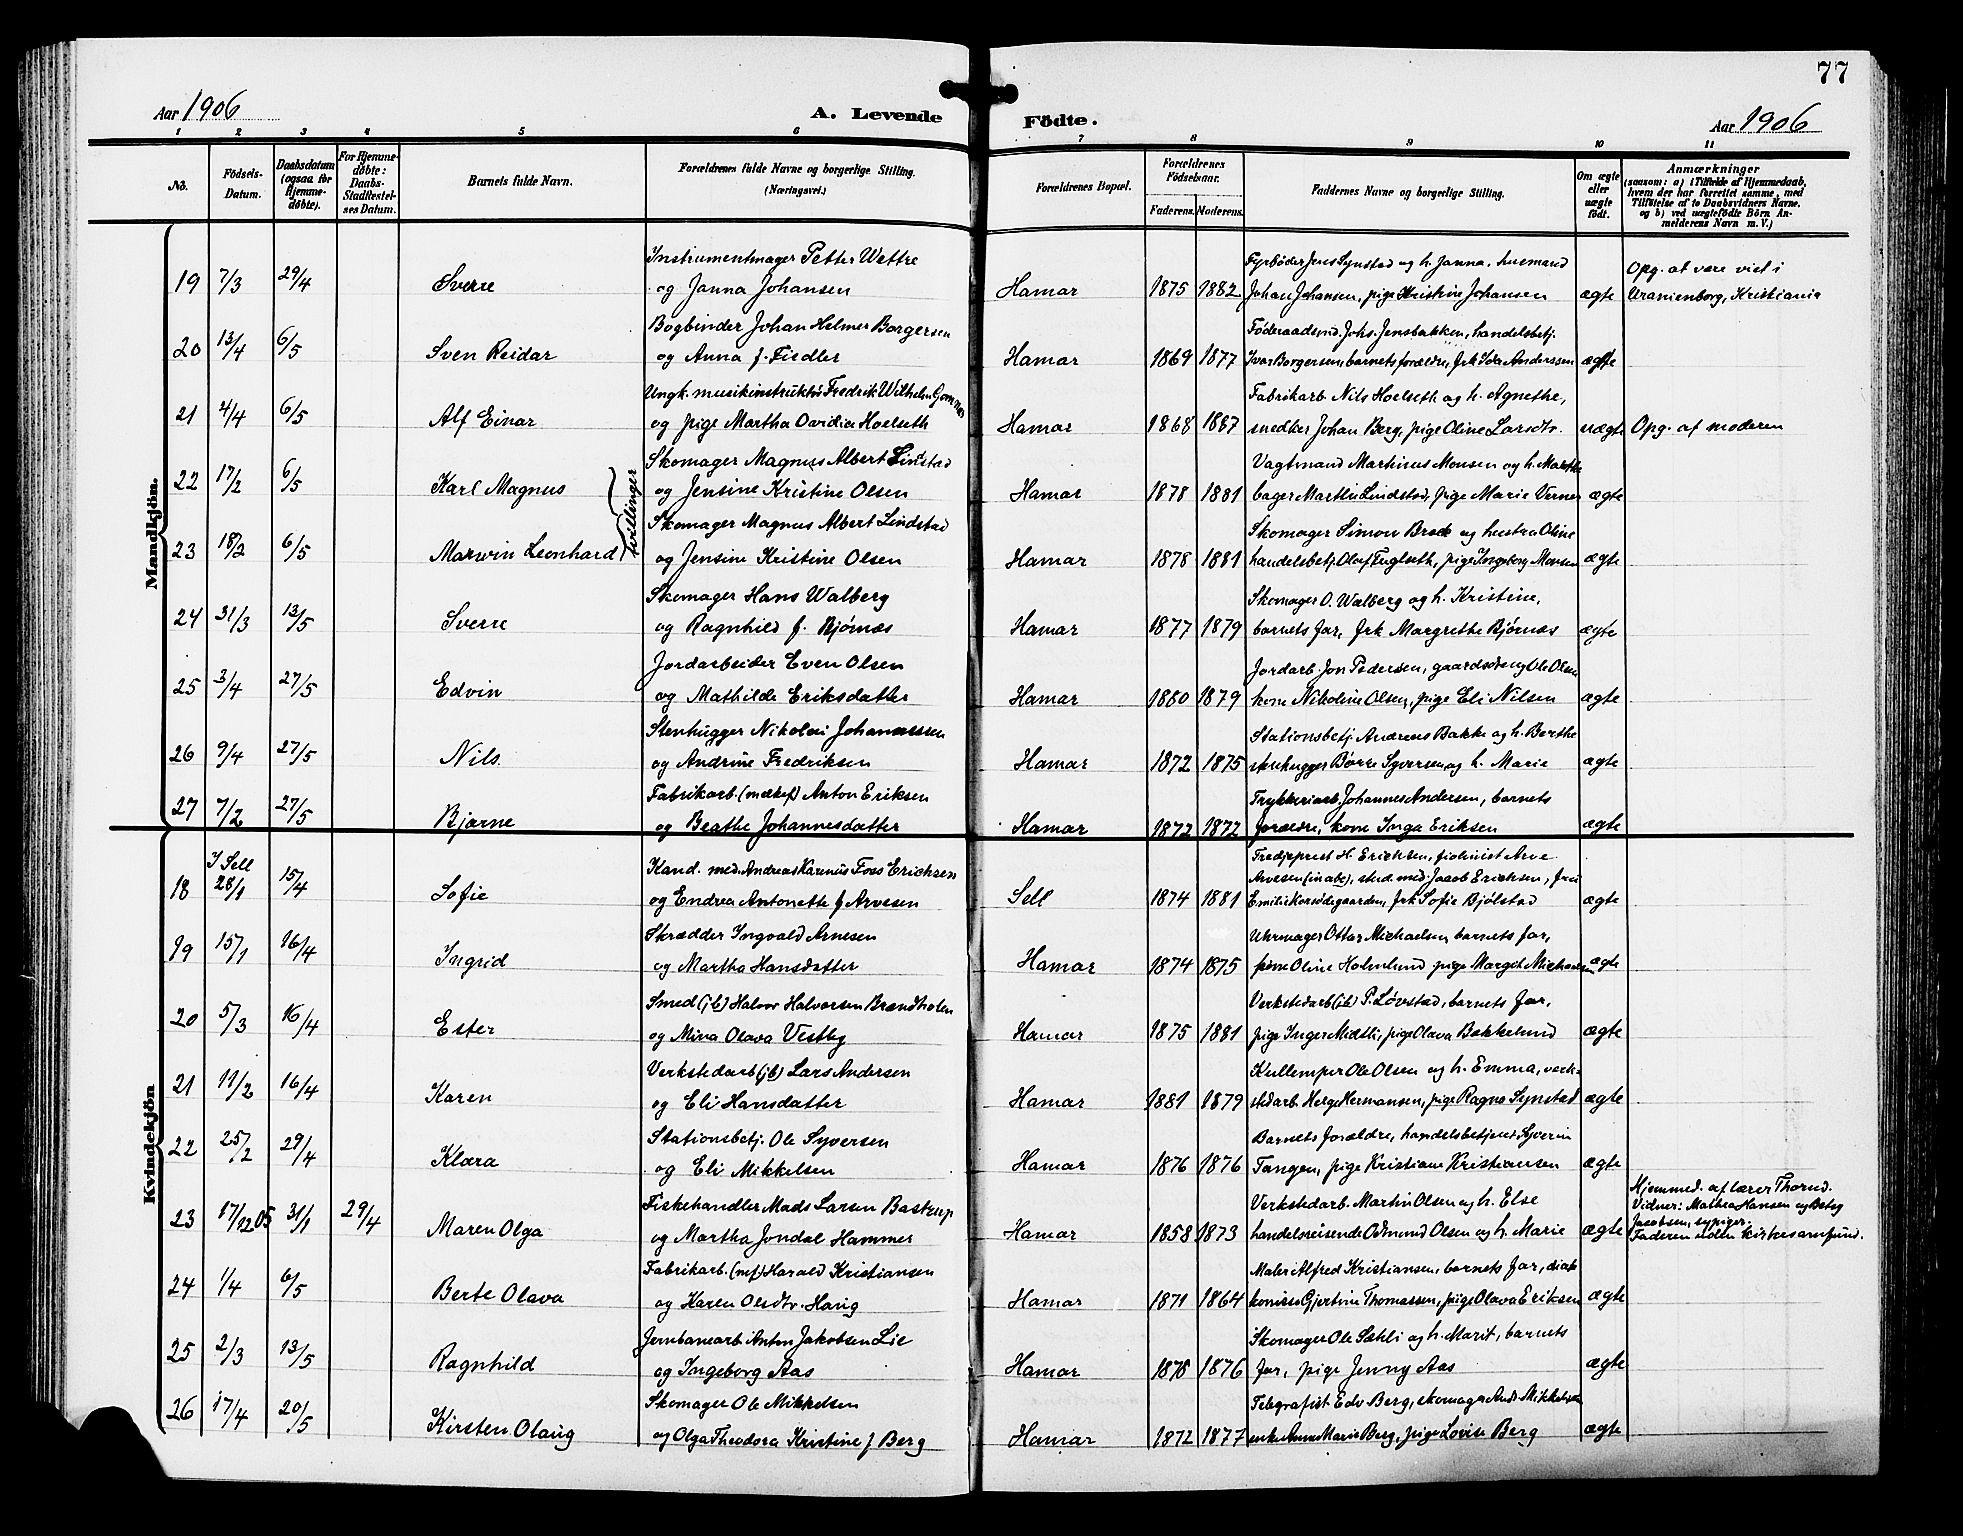 77
Aar 1906
A. Levende
Födte.
Aar 1906
1 2 3 4 5 6 7 8 9 10 11
No.
Födsels-Datum.
Daabsdatum (ogsaa for Hjemmedöbte).
For Hjemmedöbte: Daabs-Stadfæstelses Datum.
Barnets fulde Navn.
Forældrenes fulde Navne og borgerlige Stilling. (Næringsvei.)
Forældrenes Bopæl.
Forældrenes Födselsaar.
Faderens. Moderens.
Faddernes Navne og borgerlige Stilling.
Om ægte eller uægte födt.
Anmærkninger
(saasom: a) i Tilfælde af Hjemmedaab, hvem der har forrettet samme, med Tilföielse af to Daabsvidners Navne, og b) ved uægtefödte Börn Anmelderens Navn m. V.)
Mandkjön.
19 7/3 29/4 Sverre Instrumentmager Petter Wettre
og Janna Johansen Hamar 1875 1882 Fyrbøder Jens Synstad og h. Janna,
Johan Johansen, pige Kristine Johansen ægte Opg. at være viet i
Uranienborg, Kristiania
20 13/4 6/5 Sven Reidar Bogbinder Johan Helmer Borgersen
og Anna f. Fiedler Hamar 1869 1877 Föderaadsmd. Johs. Jensbakken, handelsbetj.
Ivar Borgersen, barnets forældre, frk Ida Anderssen ægte
21 4/4 6/5 Alf Einar Ungk. musikinstruktør Fredrik Wilhelm
og pige Martha Ovidia Hoelseth Hamar 1868 1887 Fabrikarb. Nils Hoelseth og h. Agnethe,
snedker Johan Berg, pige Oline Larsdtr. uægte Opg. af moderen
22 17/2 6/5 Karl Magnus tvillinger Skomager Magnus Albert Lindstad
og Jensine Kristine Olsen Hamar 1878 1881 Vagtmand Martinus Monsen og h. Marthe
bager Martin Lindstad, pige Marie Verner ægte
23 18/2 6/5 Marwin Leonhard Skomager Magnus Albert Lindstad
og Jensine Kristine Olsen Hamar 1878 1881 Skomager Simon Brock og hustru Oline
handelsbetj. Olaf Fuglseth, pige Ingeborg Monsen ægte
24 31/3 13/5 Sverre Skomager Hans Walberg
og Ragnhild f. Bjørnæs Hamar 1877 1879 Skomager O. Walberg og h. Kristine,
barnets far, frk Margrethe Bjørnæs ægte
25 3/4 27/5 Edvin Jordarbeider Even Olsen
og Mathilde Eriksdatter Hamar 1880 1879 Jordarb. Jon Pedersen, Ole Olsen
kone Nikoline Olsen, pige Eli Nilsen ægte
26 9/4 27/5 Nils Stenhugger Nikolai Johannessen
og Andrine Fredriksen Hamar 1872 1875 Stationsbetj. Andreas Bakke og h. Berthe
stenhugger Børre Syversen og h. Marie ægte
27 7/2 27/5 Bjarne Fabrikarb. Anton Eriksen
og Beathe Johannesdatter Hamar 1872 1872 Trykkeriarb. Johannes Andersen, barnets
forældre, kone Inga Eriksen ægte
Kvindekjön
18 I Sell 28/1 15/4 Sofie Kand. med. Andreas Karenus Foss Erichsen
og Endrea Antonette f Arvesen Sell 1874 1881 Tredjeprest H. Erichsen, fiolinist Arve
Arvesen, stud. med Jacob Erichsen, fru
Emilie Korsødegaarden, frk Sofie Bjølstad ægte
19 15/1 16/4 Ingrid Skrædder Ingvald Arnesen
og Martha Hansdatter Hamar 1874 1875 Uhrmager Ottar Michaelsen, barnets far,
Oline Holmlund pige Margit Michaelsen ægte
20 5/3 16/4 Ester Smed (jb) Halvor Halvorsen Brændholen
og Mina Olava Vestby Hamar 1875 1881 Verkstedarb (jb) P. Løvstad, barnets far,
pige Inger Midtli, pige Olava Bakkelund ægte
21 11/2 16/4 Karen Verkstedarb (jb) Lars Andersen
og Eli Hansdatter Hamar 1881 1879 Kullemper Ole Olsen og h. Emma, verk-
stedarb. Herge Hermansen, pige Ragna Synstad ægte
22 25/2 29/4 Klara Stationsbetj. Ole Syversen
og Eli Mikkelsen Hamar 1876 1876 Barnets forældre, handelsbetjent Syverin
Tangen, pige Kristiane Kristiansen ægte
23 17/12 05 31/1 29/4 Maren Olga Fiskehandler Mads Larsen Bastrup
og Martha Jondal Hammer Hamar 1858 1873 Verkstedarb. Martin Olsen og h. Else
handelsreisende Odmund Olsen og h. Marie ægte Hjemmed. af lærer Thorud.
Vidner: Mathea Hansen og Betsy
Jacobsen, sypiger.
Faderen uden kirkesamfund.
24 1/4 6/5 Berte Olava Fabrikarb. (mf) Harald Kristiansen
og Karen Olsdtr. Haug Hamar 1871 1864 Maler Alfred Kristiansen, barnets far, diak
konisse Gjertine Thomassen, pige Olava Eriksen ægte
25 2/3 13/5 Ragnhild Jernbanearb Anton Jakobsen Lie
og Ingeborg Aas Hamar 1878 1876 Skomager Ole Sæhli og h. Marit, barnets
far, pige Jenny Aas ægte
26 17/4 20/5 Kirsten Olaug Skomager Ole Mikkelsen
og Olga Theodora Kristine f Berg Hamar 1872 1877 Telegrafist Edv Berg, skomager Andr. Mikkelsen
enke Anne Marie Berg, pige Lovise Berg ægte